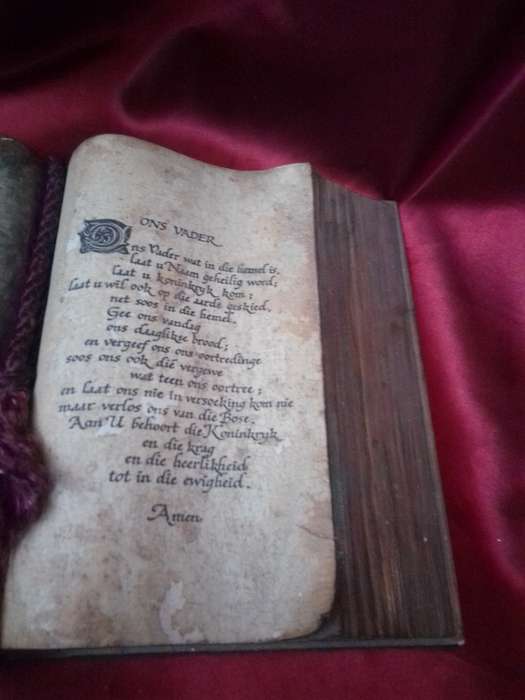 ONS VADER
Ons Vader wat in die hemel is,
laat u Naam geheilig word;
laat u koninkryk kom;
laat u wil ook op die aarde geskied,
net soos in die hemel.
Gee ons vandag
ons daaglikse brood;
en vergeef ons ons oortredinge
soos ons ook die vergewe
wat teen ons oortree;
en laat ons nie in versoeking kom nie
maar verlos ons van die Bose.
Aan U behoort die Koninkryk
en die krag
en die heerlikheid
tot in die ewigheid.
Amen